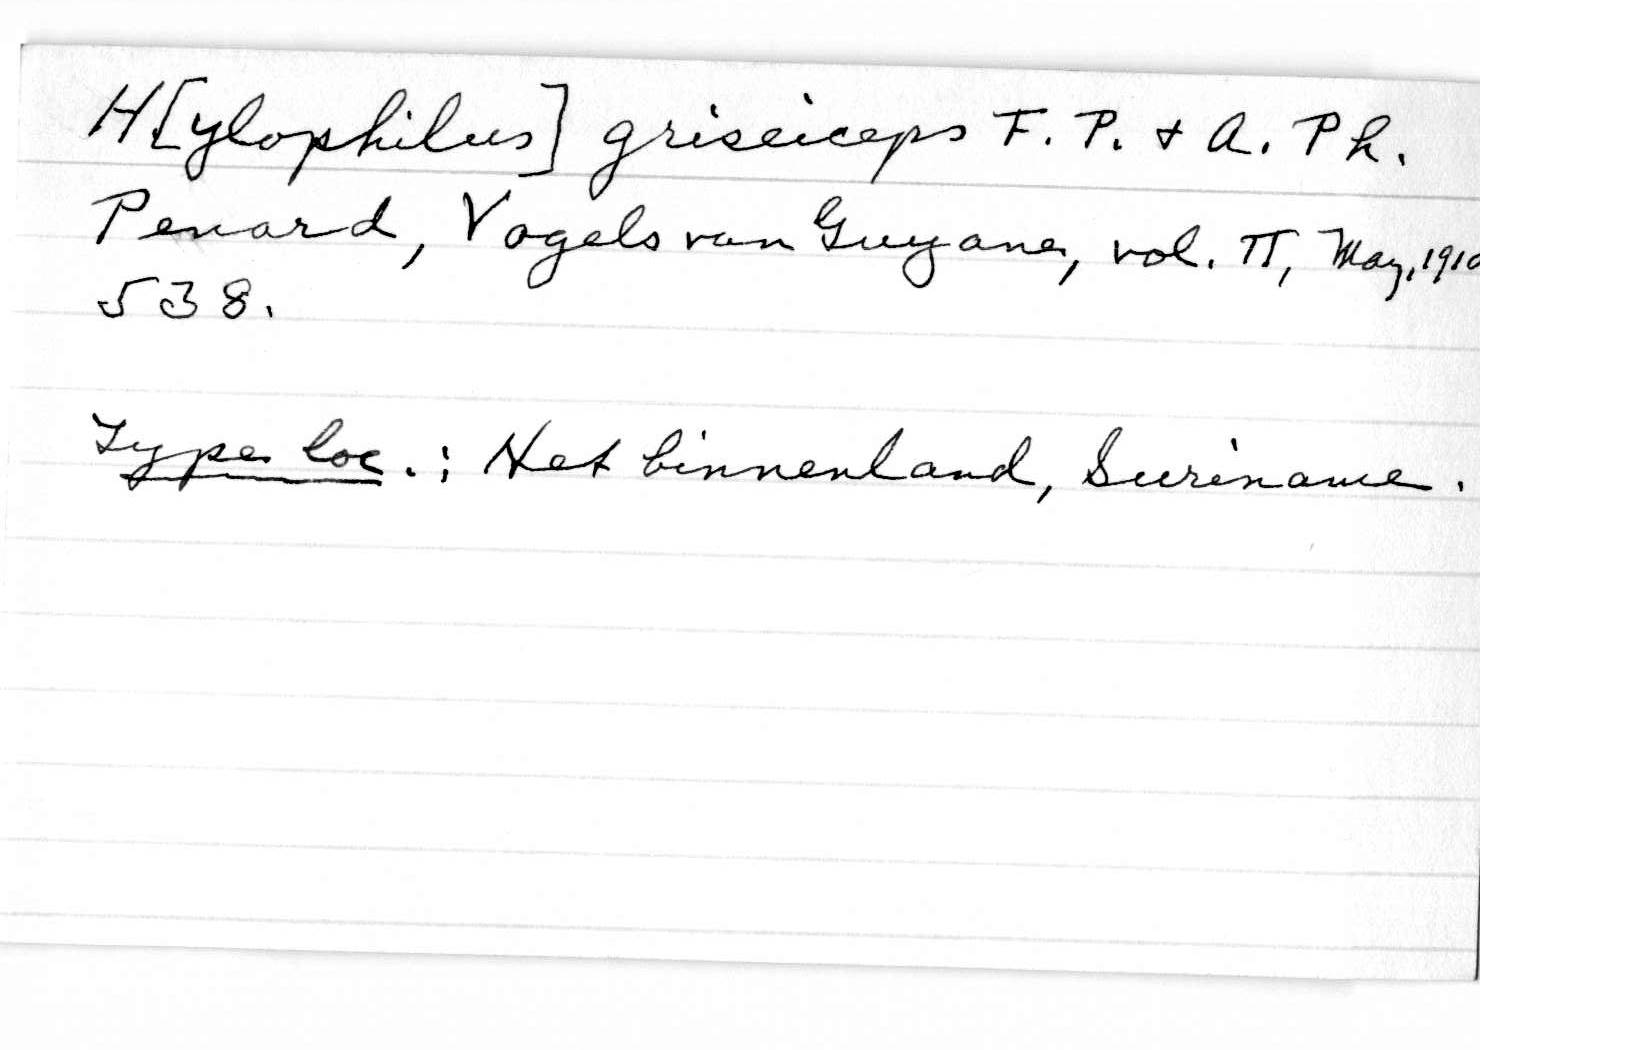 H[ylophilus] griseiceps F. P. + A. Ph.
Penard, Vogels van Guyana, vol. II, May, 1910
538.
Type loc.: Het binnenland, Suriname.